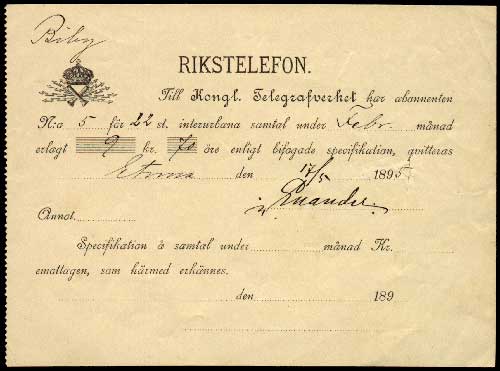 Biby
RIKSTELEFON.
Till Kongl. Telegrafverket har abonnenten
N:o 5 för 22 st. interurbana samtal under Febr. månad
erlagt 9 kr. 70 öre enligt bifogade specifikation, qvitteras
den 17/5 1895
Annot.
Specifikation å samtal under månad Kr.
emottagen, som härmed erkännes.
den 189